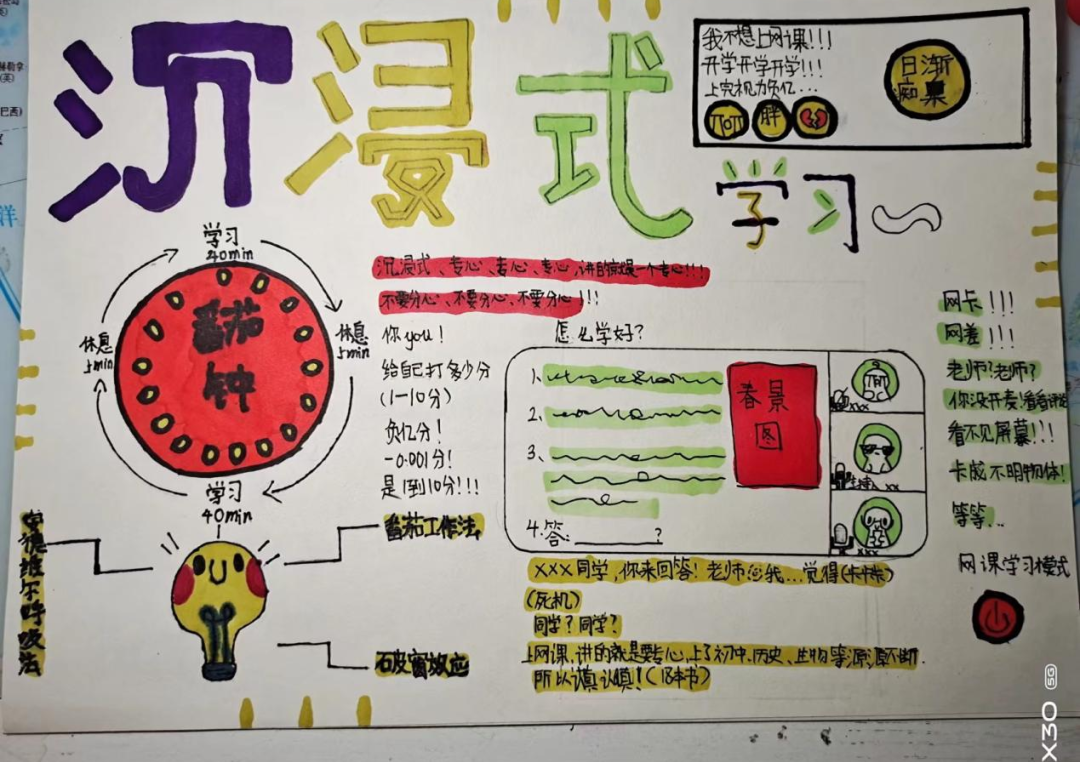 沉浸式
学习
我不想上网课!!!
开学开学开学!!!
上完视力负亿...
胖
日渐
痴巢
学习
40min
休息
5min
学习
40min
休息
5min
番茄
钟
沉浸式、专心、专心、专心,讲的就是一个专心!!!
不要分心、不要分心、不要分心!!!
你you!
给自己打多少分
(1—10分)
负亿分!
-0.001分!
是1到10分!!!
怎么学好?
1、
2、
3、
4.答:________?
春景
图
xxx
主持人 xx
xxx
网卡!!!
网差!!!
老师?老师?
看不见屏幕!!!
卡成不明物体!
等等...
网课学习模式
番茄工作法
石皮窗效应
安德维尔呼吸法
XXX同学,你来回答!老师
我...觉得(卡卡卡)
(死机)
同学?同学?
上网课,讲的就是要专心,上了初中,历史、生物等源源不断.
所以认真认真!(18本书)
X30 5G